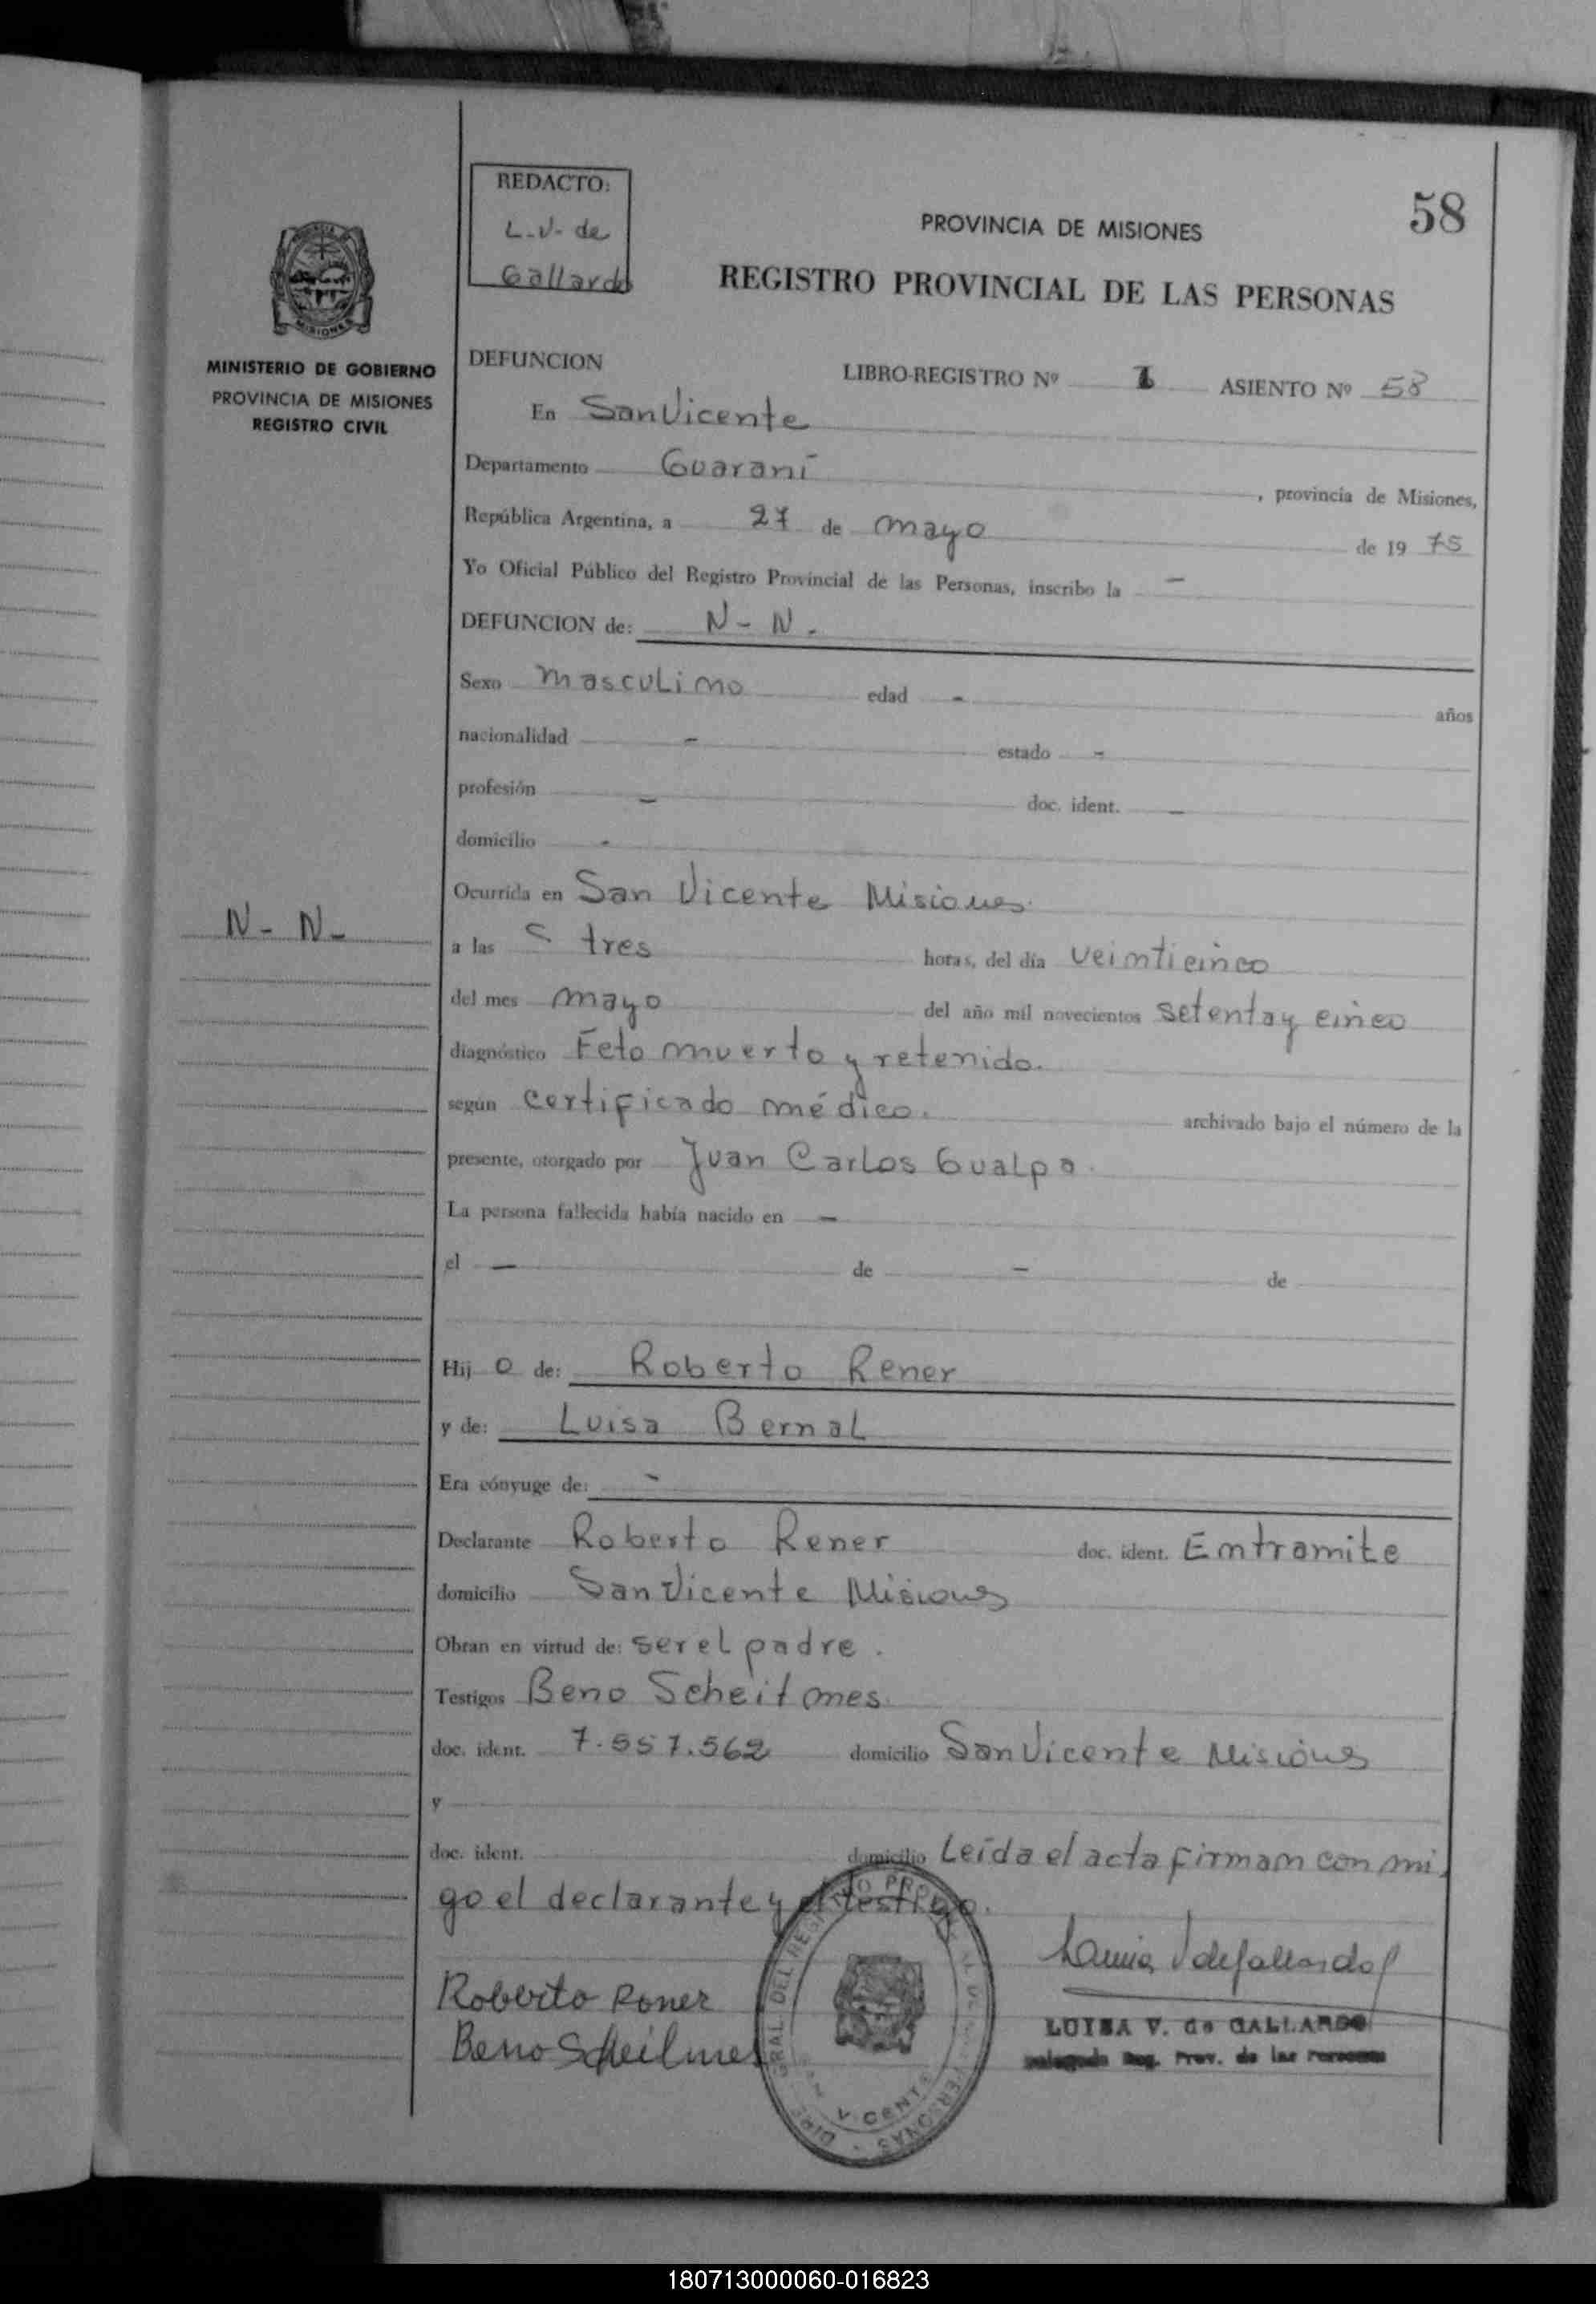 REDACTO:
L.V. de
Gallardo
58
PROVINCIA DE MISIONES
REGISTRO PROVINCIAL DE LAS PERSONAS
MISIONES
MINISTERIO DE GOBIERNO
PROVINCIA DE MISIONES
REGISTRO CIVIL
DEFUNCION LIBRO-REGISTRO Nº 1 ASIENTO Nº 58
En San Vicente
Departamento Guaraní , provincia de Misiones,
República Argentina, a 27 de mayo de 1975
Yo Oficial Público del Registro Provincial de las Personas, inscribo la -
DEFUNCION de: N - N.
Sexo masculino edad - años
nacionalidad - estado -
profesión - doc. ident. -
domicilio -
Ocurrida en San Vicente Misiones.
N - N -
a las tres horas, del día veinticinco
del mes mayo del año mil novecientos setenta y cinco
diagnóstico Feto muerto y retenido.
según certificado médico. archivado bajo el número de la
presente, otorgado por Juan Carlos Gualpa.
La persona fallecida había nacido en -
el - de - de
Hijo de: Roberto Rener
y de: Luisa Bernal
Era cónyuge de: -
Declarante Roberto Rener doc. ident. En tramite
domicilio San Vicente Misiones
Obran en virtud de: ser el padre.
Testigos Beno Scheitmes.
doc. ident. 7.557.562 domicilio San Vicente Misiones
y
doc. ident. domicilio Leída el acta firman con mi
go el declarante y el testigo.
Roberto Roner
Beno Scheilmes
LUISA V. de GALLARDO
Delegada Reg. Prov. de las Personas
180713000060-016823